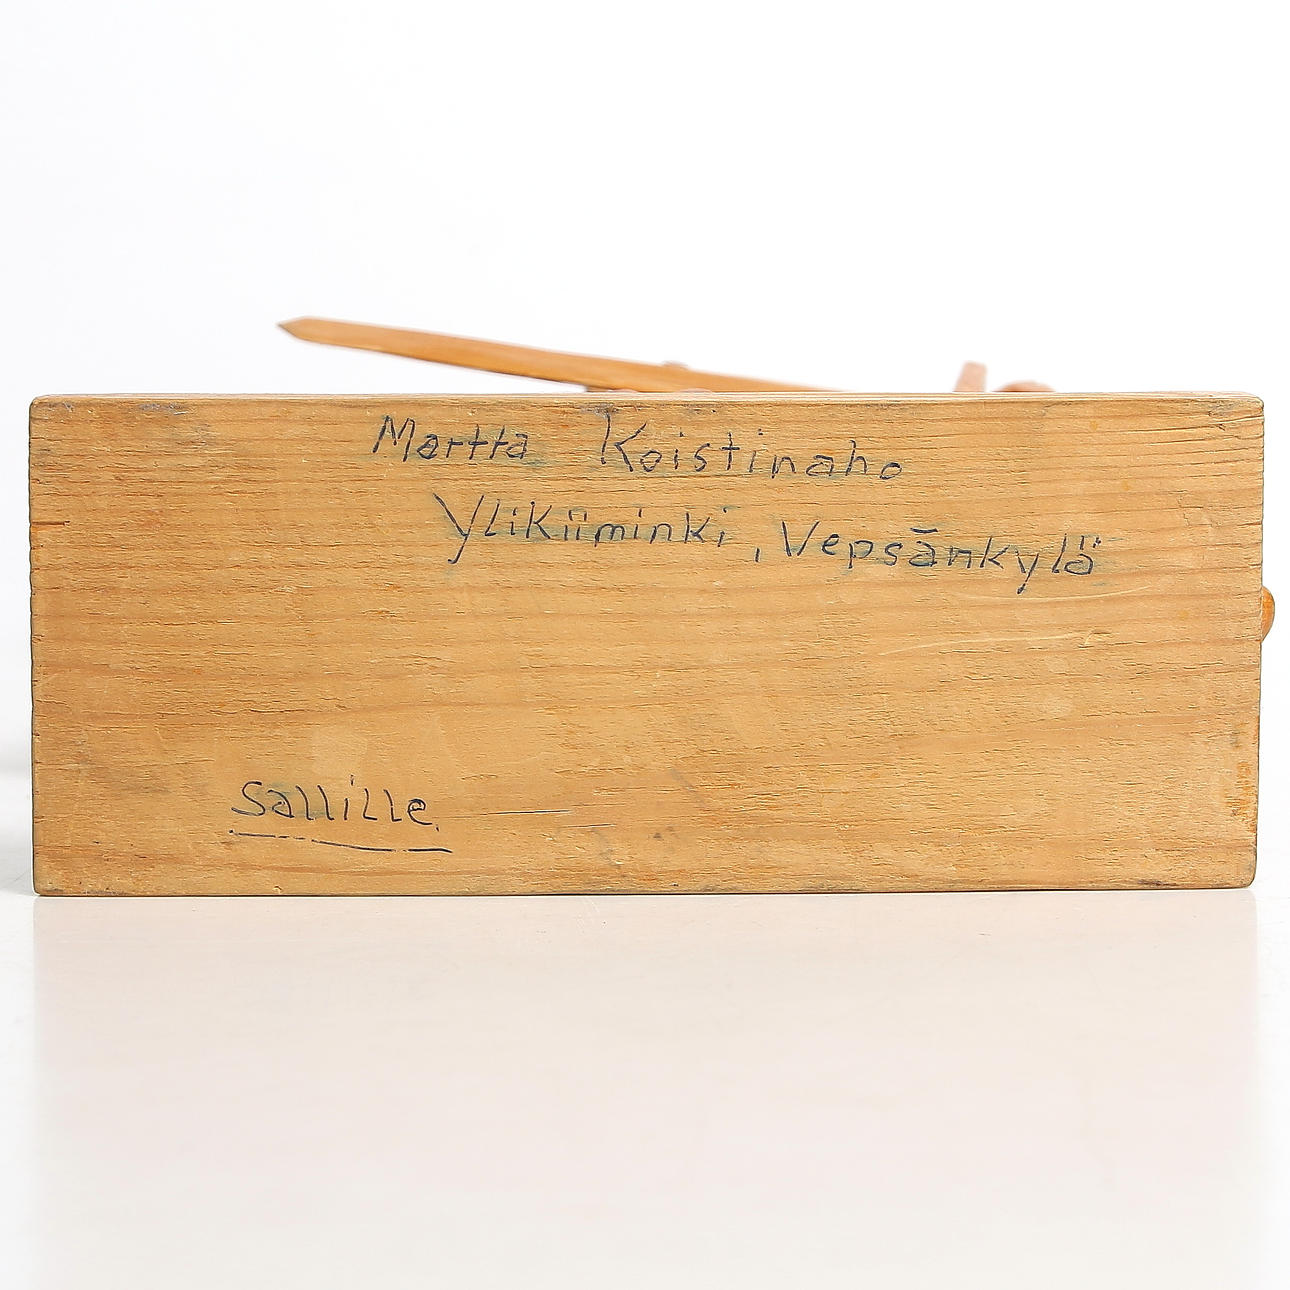 Martta Koistinaho
Ylikiiminki, Vepsänkylä
Sallille